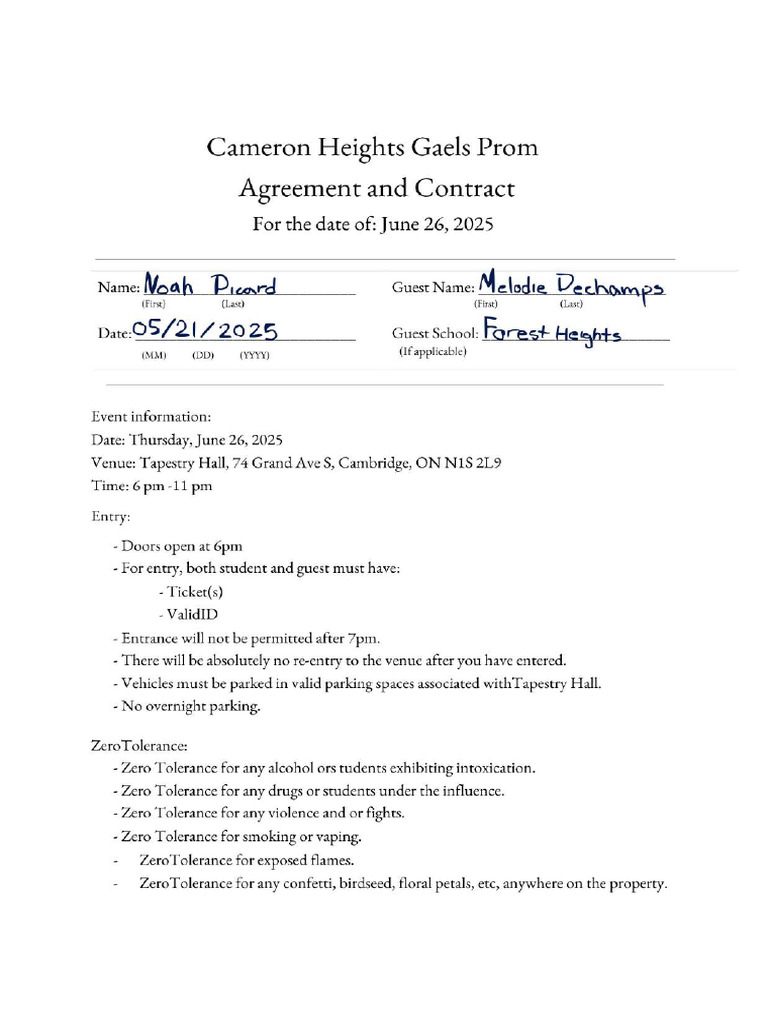 Cameron Heights Gaels Prom
Agreement and Contract
For the date of: June 26, 2025
Name: Noah Picard
(First) (Last)
Guest Name: Melodie Dechamps
(First) (Last)
Date: 05/21/2025
(MM) (DD) (YYYY)
Guest School: Forest Heights
(If applicable)
Event information:
Date: Thursday, June 26, 2025
Venue: Tapestry Hall, 74 Grand Ave S, Cambridge, ON N1S 2L9
Time: 6 pm -11 pm
Entry:
- Doors open at 6pm
- For entry, both student and guest must have:
- Ticket(s)
- ValidID
- Entrance will not be permitted after 7pm.
- There will be absolutely no re-entry to the venue after you have entered.
- Vehicles must be parked in valid parking spaces associated withTapestry Hall.
- No overnight parking.
ZeroTolerance:
- Zero Tolerance for any alcohol ors tudents exhibiting intoxication.
- Zero Tolerance for any drugs or students under the influence.
- Zero Tolerance for any violence and or fights.
- Zero Tolerance for smoking or vaping.
- ZeroTolerance for exposed flames.
- ZeroTolerance for any confetti, birdseed, floral petals, etc, anywhere on the property.